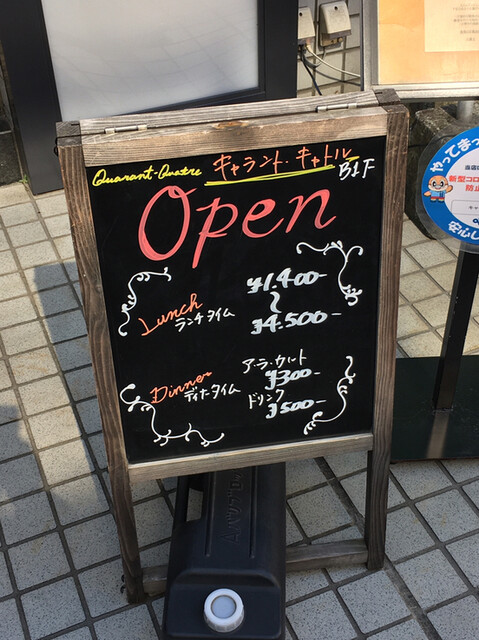 Quarant-Quatre キャラント・キャトル
B1F
Open
Lunch ¥1.400-
ランチタイム 〜
¥4.500-
Dinner ア・ラ・カルト
ディナータイム ¥300-
ドリンク
¥500-
やってまっ
新型コロ
防止
安心し